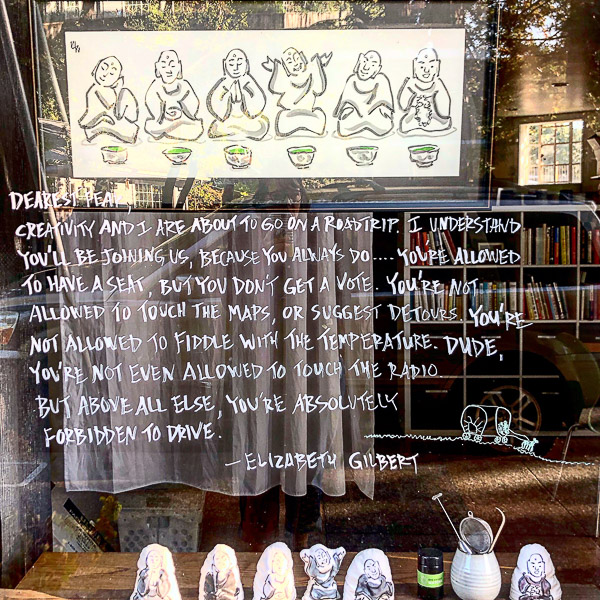 DEAREST FEAR,
CREATIVITY AND I ARE ABOUT TO GO ON A ROADTRIP. I UNDERSTAND
YOU'LL BE JOINING US, BECAUSE YOU ALWAYS DO.... YOU'RE ALLOWED
TO HAVE A SEAT, BUT YOU DON'T GET A VOTE. YOU'RE NOT
ALLOWED TO TOUCH THE MAPS, OR SUGGEST DETOURS. YOU'RE
NOT ALLOWED TO FIDDLE WITH THE TEMPERATURE. DUDE,
YOU'RE NOT EVEN ALLOWED TO TOUCH THE RADIO.
BUT ABOVE ALL ELSE, YOU'RE ABSOLUTELY
FORBIDDEN TO DRIVE.
—ELIZABETH GILBERT